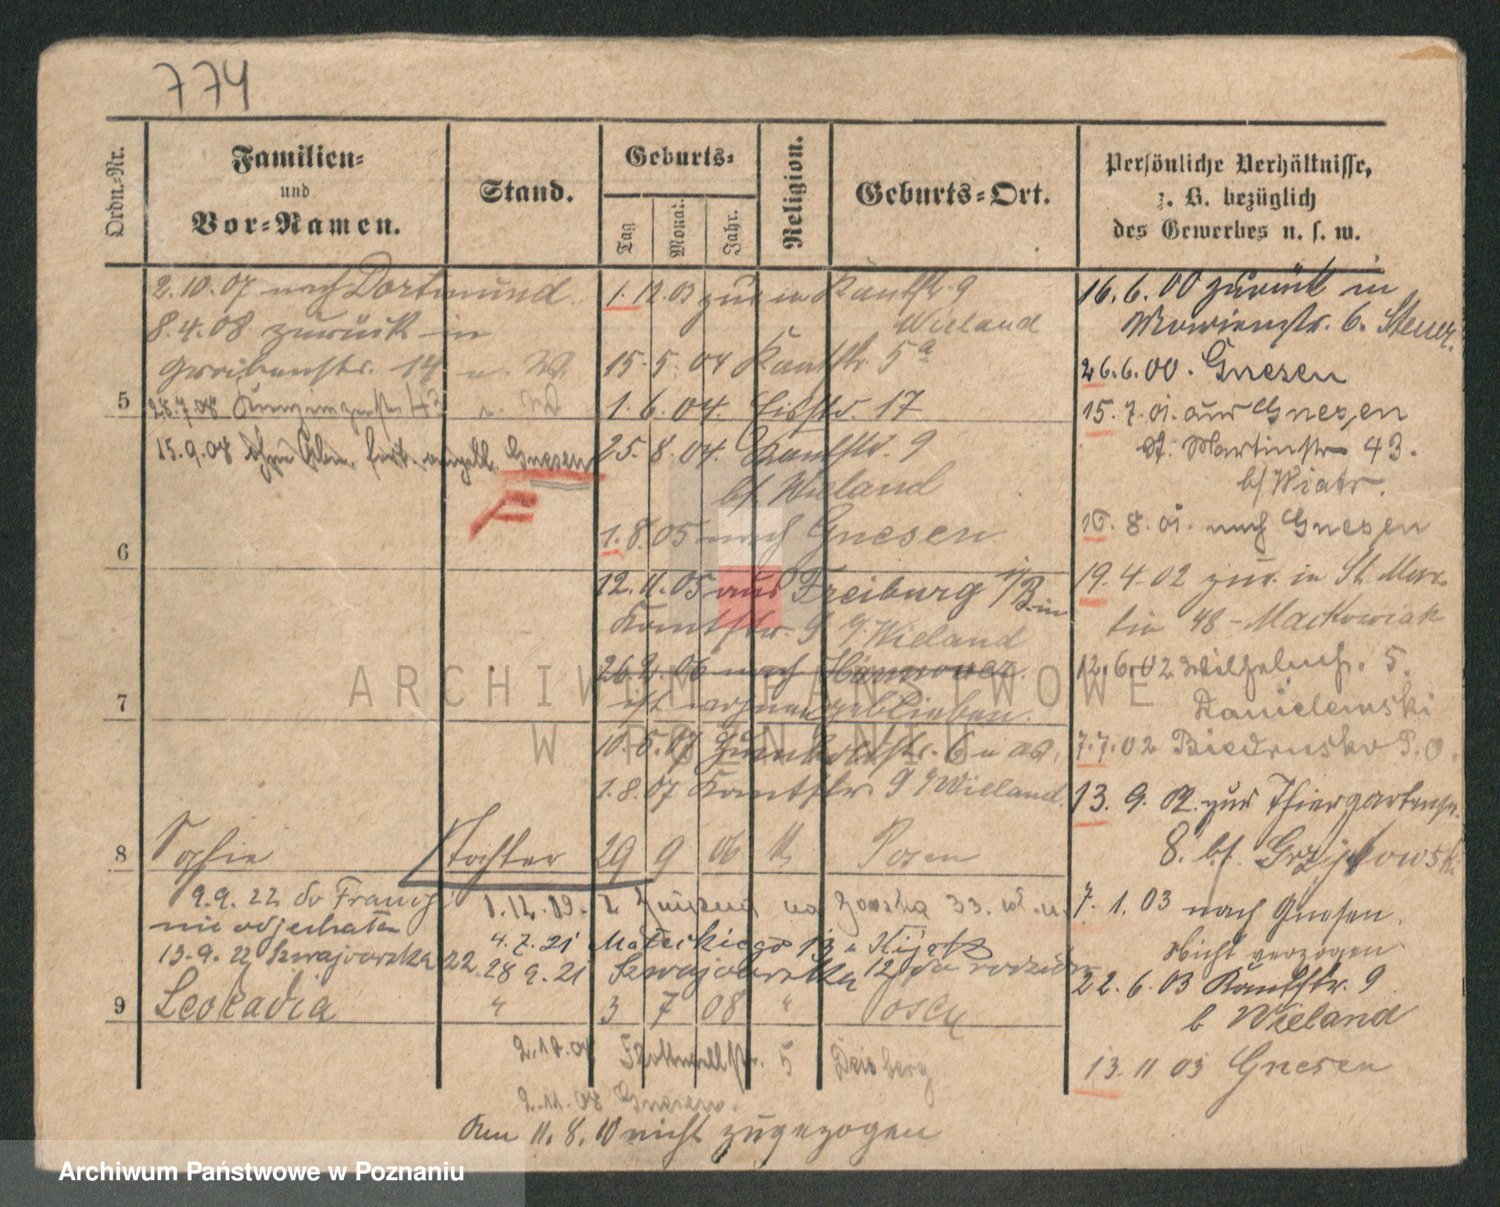 774
Ordn.-Nr.
Familien-
und
Vor-Namen.
Stand.
Geburts-
Tag
Monat.
Jahr.
Religion.
Geburts-Ort.
Persönliche Verhältnisse,
z. B. bezüglich
des Gewerbes u. s. w.
2.10.07 nach Dortmund.
8.4.08 zurück in
Grabenstr. 14 u. W.
5
28.7.08
15.9.08 ohne Abm. fort. angebl. Gnesen
6
7
8 Sophie Tochter 29 9 06 k Posen
9.9.22 do Francji
nie odjechała
13.9.22 Szwajcarska 22.
9 Leokadia " 3 7 08 " Posen
1. 12 03 zur in Kantstr. 9
Wieland
15. 5. 04 Kantstr 5a
1. 6. 04. 17
25. 8. 04. Kantstr. 9
b/ Wieland
1. 8. 05 nach Gnesen
12. 11. 05 aus Freiburg i/B. in
Kantstr. 9 b/ Wieland
26.2.06 nach Hannover.
ist wohnen geblieben.
10.5.07 6
1.8.07 Kantstr. 9 b/Wieland.
1.12.19. na 33.
4.7.21 Małeckiego 13
28 9.21 Szwajcarska 12
2.10.08 Trottwellstr. 5
2.11.08 Gnesen.
Am 11. 8. 10 nicht zugezogen
16. 6. 00 zurück in
Marienstr. 6. Steuer.
26.6.00. Gnesen
15. 7. 01. aus Gnesen
St. Martinstr 43.
b/ Wiatr.
10. 8. 01. nach Gnesen
19. 4. 02 zur. in St. Mar-
tin 48 - Maćkowiak
12.6.02 Wilhelmstr. 5.
Danielewski
7.7.02 Biedrusko P.O.
13. 9. 02. zur Thiergartenstr.
8. b/
7. 1. 03 nach Gnesen.
Nicht verzogen
22. 6. 03 Kantstr. 9
b Wieland
13. 11 03 Gnesen
ARCHIWUM PAŃSTWOWE
W POZNANIU
Archiwum Państwowe w Poznaniu